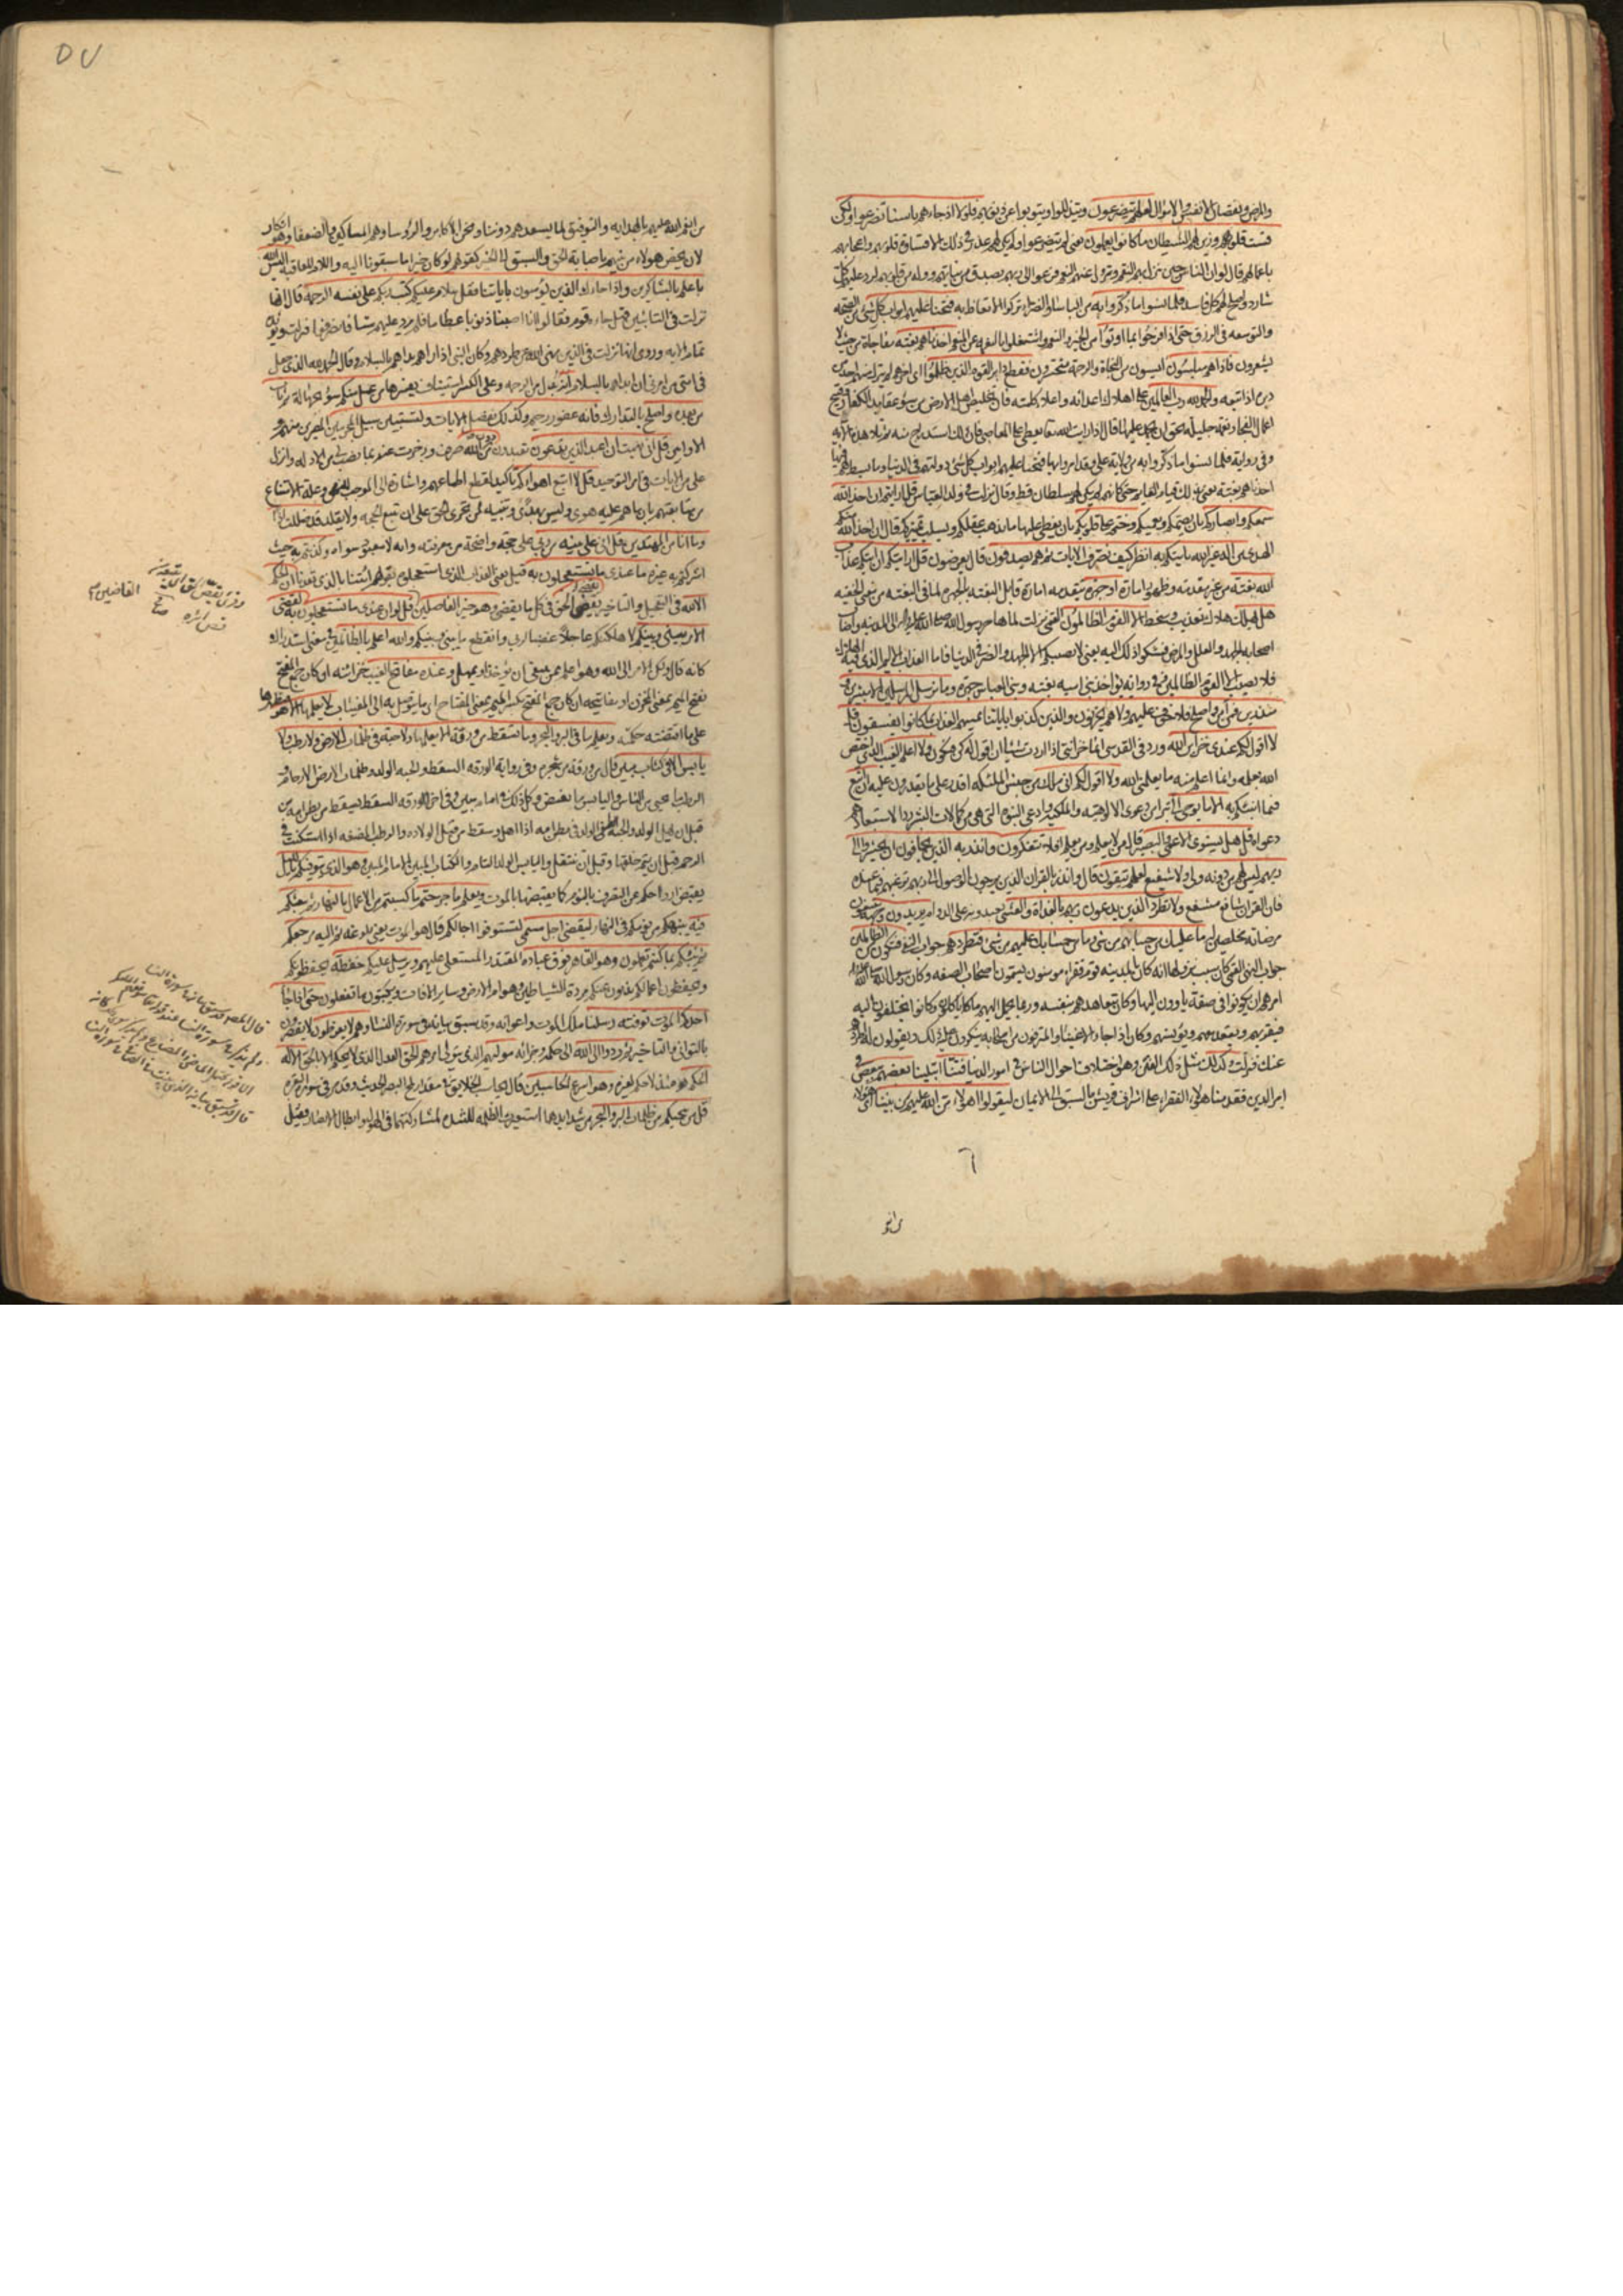 والمرض ونقصان الانفس والاموال لعلهم يتضرعون ويتذللوا ويتوبوا عن ذنوبهم فلولا اذ جاءهم باسنا تضرعوا ولكن
قست قلوبهم وزين لهم الشيطان ما كانوا يعملون يعنى لم يتضرعوا ولم يكن لهم عذر فى ذلك الا قساوة قلوبهم واعجابهم
باعمالهم قال لو ان الناس حين تنزل بهم النقم وتزول عنهم النعم فزعوا الى ربهم بصدق من نياتهم ووله من قلوبهم لرد عليهم كل
شارد واصلح لهم كل فاسد فلما نسوا ما ذكروا به من الباساء والضراء تركوا الاتعاظ به فتحنا عليهم ابواب كل شئ من الصحة
والتوسعه فى الرزق حتى اذا فرحوا بما اوتوا من الخير والنعم واشتغلوا بالنعم عن المنعم اخذناهم بغتة مفاجاة من حيث لا
يشعرون فاذا هم مبلسون آيسون من النجاة والرحمة متحسرون فقطع دابر القوم الذين ظلموا اى اخرهم لم يترك منهم احد
دبره اذا تبعه والحمد لله رب العالمين على اهلاك اعدائه واعلاء كلمته فان تخليص اهل الارض من سوء عقايد الكفار وقبيح
اعمال الفجار نعمة جليلة يحق ان يحمد عليها قال اذا رايت الله تعا يعطى على المعاصى فان ذلك استدراج منه ثم تلا هذه الآيه
وفى رواية فلما نسوا ما ذكروا به من ولاية على وقد امروا بها فتحنا عليهم ابواب كل شئ دولتهم فى الدنيا وما بسط لهم فيها
اخذناهم بغتة يعنى بذلك قيام القايم حتى كانهم لم يكن لهم سلطان قط وقال نزلت فى ولد العباس قل ارايتم ان اخذ الله
سمعكم وابصاركم بان يصمكم ويعميكم وختم على قلوبكم بان يغطى عليها ما يذهب عقلكم ويسلب تميزكم قال ان اخذ الله منكم
الهدى من اله غير الله ياتيكم به انظر كيف نصرف الآيات ثم هم يصدفون قال يعرضون قل ارايتكم ان اتيكم عذاب
الله بغتة من غير مقدمة وظهور امارة او جهرة بتقدمه امارة قابل البغتة بالجهرة لما فى البغتة من معنى الخفيه
هل يهلك هلاك تعذيب وسخط الا القوم الظالمون القمى نزلت لما هاجر رسول الله صلى الله عليه واله الى المدينه واصاب
اصحابه الجهد والعلل والمرض فشكوا ذلك اليه يعنى لا يصيبكم الا الجهد والضر فى الدنيا فاما العذاب الاليم الذى فيه الهلاك
فلا يصيب الا القوم الظالمين وفى رواية يؤاخذ بنى اميه بغتة وبنى العباس جهرة وما نرسل المرسلين الا مبشرين و
منذرين فمن آمن واصلح فلا خوف عليهم ولا هم يحزنون والذين كذبوا باياتنا يمسهم العذاب بما كانوا يفسقون قل
لا اقول لكم عندى خزاين الله ورد فى القدسى انما خزائنى اذا اردت شيئا ان اقول له كن فيكون ولا اعلم الغيب الذى اختص
الله بعلمه وانما اعلم منه ما يعلمنى الله ولا اقول لكم انى ملك من جنس الملئكة اقدر على ما يقدرون عليه ان اتبع
فيما انبئكم به الا ما يوحى الى تبرأ من دعوى الالوهية والملكية وادعى النبوة التى هى من كمالات البشر ردا لاستبعادهم
دعواه قل هل يستوى الاعمى والبصير قال من لا يعلم ومن يعلم افلا تتفكرون وانذر به الذين يخافون ان يحشروا الى
ربهم ليس لهم من دونه ولى ولا شفيع لعلهم يتقون قال وانذر بالقران الذين يرجون الوصول الى ربهم ترغبهم فيما عنده
فان القران شافع مشفع ولا تطرد الذين يدعون ربهم بالغداة والعشى يعبدونه على الدوام يريدون وجهه يبتغون
مرضاته مخلصين له ما عليك من حسابهم من شئ وما من حسابك عليهم من شئ فتطردهم جواب النفى فتكون من الظالمين
جواب النهى القمى كان سبب نزولها انه كان بالمدينه قوم فقراء مومنون يسمون اصحاب الصفه وكان رسول الله صلى الله عليه واله
امرهم ان يكونوا فى صفة ياوون اليها وكان يتعاهدهم بنفسه وربما يحمل اليهم ما ياكلون وكانوا يختلفون اليه
فيقربهم ويقعد معهم ويونسهم وكان اذا جاء الاغنياء والمترفون من اصحابه ينكرون عليه ذلك ويقولون له اطردهم
عنك فنزلت وكذلك مثل ذلك الفتن وهو اختلاف احوال الناس فى امور الدنيا فتنا ابتلينا بعضهم ببعض فى
امر الدين فقدمنا هولاء الفقراء على اشراف قريش بالسبق الى الايمان ليقولوا اهولاء من الله عليهم من بيننا اى هولاء
٦
من انعم
من انعم الله عليهم بالهداية والتوفيق لما يسعدهم دوننا ونحن الاكابر والرؤسا وهم المساكين والضعفا وهو انكار
لان يخص هولاء من بينهم باصابة الحق والسبق الى الخير كقولهم لو كان خيرا ما سبقونا اليه واللام للعاقبة اليس الله
باعلم بالشاكرين واذا جاءك الذين يؤمنون باياتنا فقل سلام عليكم كتب ربكم على نفسه الرحمة قال انها
نزلت فى التائبين قيل جاء قوم فقالوا انا اصبنا ذنوبا عظاما فلم يرد عليهم شيئا فانصرفوا فنزلت ويؤيده
تمام الايه وروى انها نزلت فى الذين نهى الله عن طردهم وكان النبى اذا راهم بداهم بالسلام وقال الحمد لله الذى جعل
فى امتى من امرنى ان ابداهم بالسلام انه بدل من الرحمه وعلى الكسر استيناف يفسرها من عمل منكم سوء بجهالة ثم تاب
من بعده واصلح بالتدارك فانه غفور رحيم وكذلك نفصل الايات ولتستبين سبيل المجرمين المصرين منهم و
الاوابين قل انى نهيت ان اعبد الذين تدعون تعبدون من دون الله صرفت وزجرت عنه بما نصب لى من الادلة وانزل
على من الايات فى امر التوحيد قل لا اتبع اهواءكم تاكيد لقطع اطماعهم واشارة الى الموجب للنهى وعلة الامتناع
من متابعتهم بان ما هم عليه هوى وليس بهدى وتنبيه لمن تحرى الحق على ان يتبع الحجة ولا يقلد قد ضللت اذا
وما انا من المهتدين قل انى على بينة من ربى على حجة واضحة من معرفته وانه لا معبود سواه وكذبتم به حيث
اشركتم به غيره ما عندى ما تستعجلون به قيل يعنى العذاب الذى استعجلوه بقولهم ائتنا بالذى تعدنا ان الحكم
الا لله فى التعجيل والتاخير يقض الحق فى كل ما يقضى وهو خير الفاصلين قل لو ان عندى ما تستعجلون به لقضى
الامر بينى وبينكم لاهلكتكم عاجلا غضبا لربى وانقطع ما بينى وبينكم والله اعلم بالظالمين فى معنى استدراك
كانه قال ولكن الامر الى الله وهو اعلم بمن ينبغى ان يؤخذ او يمهل وعنده مفاتح الغيب خزائنه ان كان جمع المفتح
بفتح الميم بمعنى المخزن او مفاتيحه ان كان جمع المفتح بكسر الميم بمعنى المفتاح اى ما يتوصل به الى المغيبات لا يعلمها الا هو فيظهرها
على ما اقتضته حكمته ويعلم ما فى البر والبحر وما تسقط من ورقة الا يعلمها ولا حبة فى ظلمات الارض ولا رطب ولا
يابس الا فى كتاب مبين قال من ورقة من شجرة وفى رواية الورقه السقط والحبه الولد وظلمات الارض الارحام و
الرطب ما يحيى من الناس واليابس ما يغيض وكل ذلك فى امام مبين وفى اخرى الورقه السقط يسقط من بطن امه من
قبل ان يهل الولد والحبة يعنى الولد فى بطن امه اذا اهل وسقط من قبل الولاده والرطب المضغه اذا استكنت فى
الرحم قبل ان يتم خلقها وقبل ان ينتقل واليابس الولد التام والكتاب المبين الامام المبين وهو الذى يتوفيكم بالليل
يقبض ارواحكم عن التصرف بالنوم كما يقبضها بالموت ويعلم ما جرحتم ما كسبتم من الاعمال بالنهار ثم يبعثكم
فيه ينبهكم من نومكم فى النهار ليقضى اجل مسمى لتستوفوا اجالكم قال هو الموت يعنى بلوغه ثم اليه مرجعكم
ثم ينبئكم بما كنتم تعملون وهو القاهر فوق عباده المقتدر المستعلى عليهم ويرسل عليكم حفظة يحفظونكم
ويحفظون اعمالكم يذبون عنكم مردة الشياطين وهوام الارض وساير الافات ويكتبون ما تفعلون حتى اذا جاء
احدكم الموت توفته رسلنا ملك الموت واعوانه وقد سبق بيانه فى سورة النساء وهم لا يفرطون لا يقصرون
بالتوانى والتاخير ثم ردوا الى الله الى حكمه وجزائه موليهم الذى يتولى امرهم الحق العدل الذى لا يحكم الا بالحق الا له
الحكم يومئذ لا حكم لغيره وهو اسرع الحاسبين قال يحاسب الخلايق فى مقدار لمح البصر الحديث وقد مر فى سورة البقره
قل من ينجيكم من ظلمات البر والبحر من شدايدهما استعيرت الظلمه للشده لمشاركتهما فى الهول وابطال الابصار وقيل